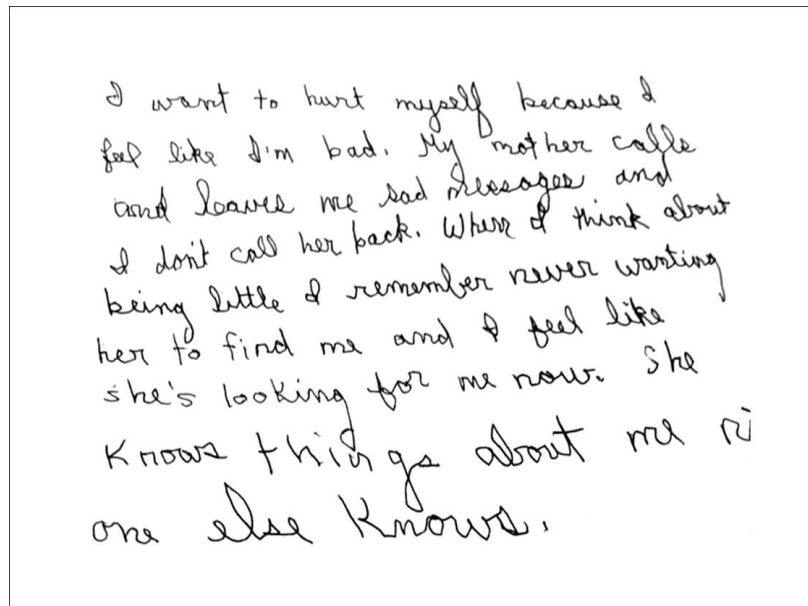 I want to hurt myself because I
feel like I'm bad. My mother calls
and leaves me sad messages and
I don't call her back. When I think about
being little I remember never wanting
her to find me and I feel like
she's looking for me now. She
knows things about me
one else knows.